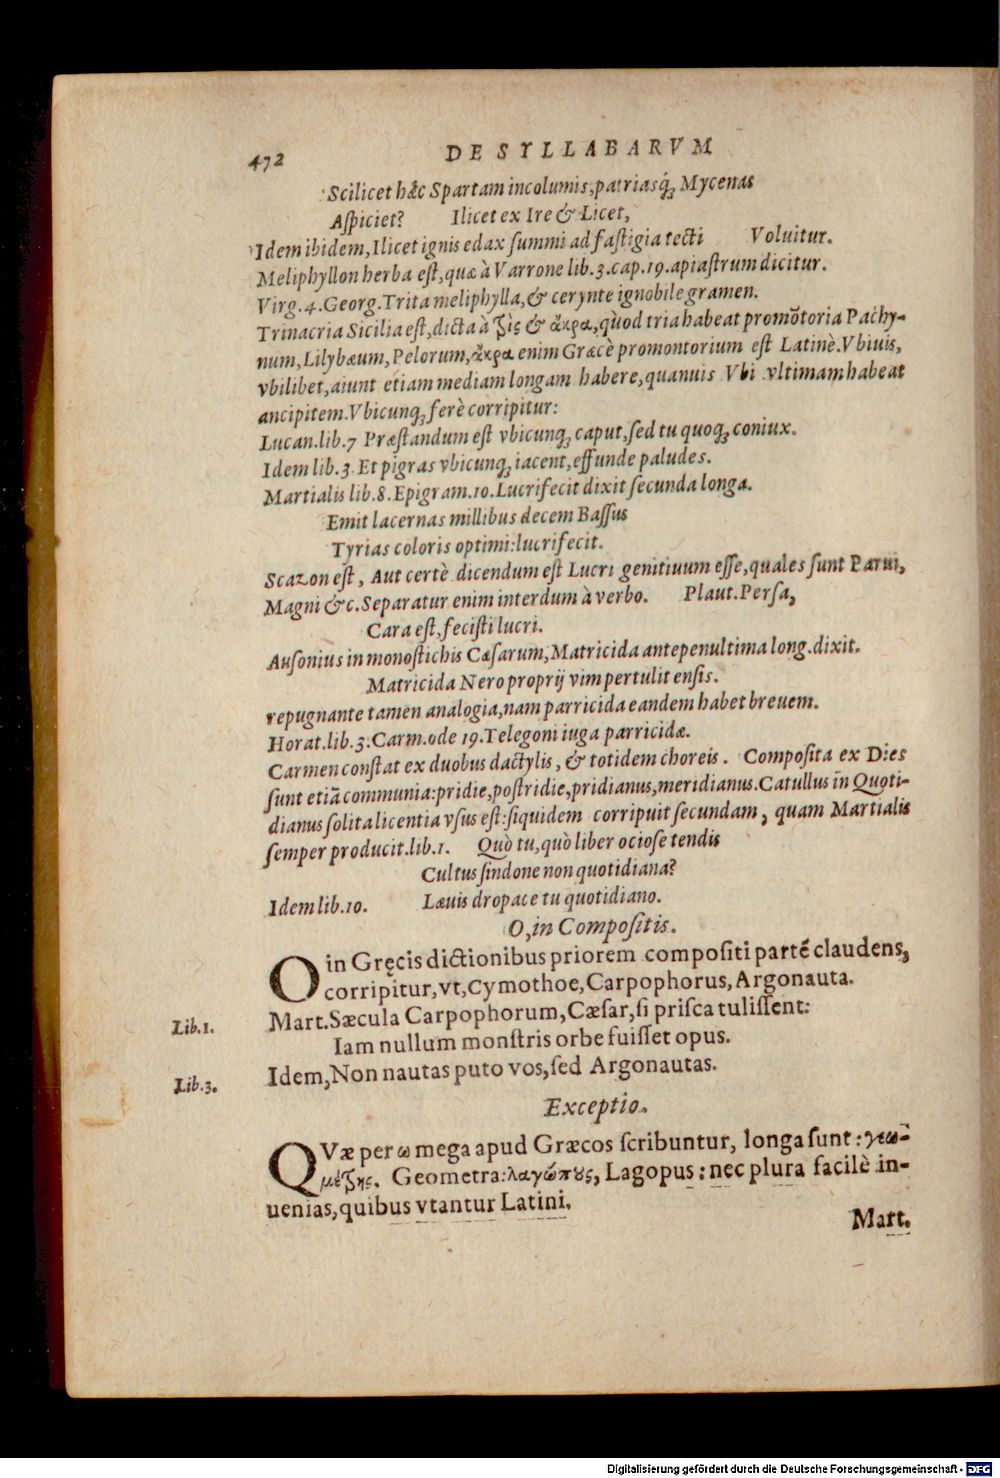 472 DE SYLLABARVM
Scilicet hæc Spartam incolumis, patriasq́ꝫ Mycenas
Aſpiciet? Ilicet ex Ire & Licet,
Idem ibidem, Ilicet ignis edax ſummi ad faſtigia tecti Voluitur.
Meliphyllon herba eſt, quæ à Varrone lib.3.cap.19.apiaſtrum dicitur.
Virg.4.Georg.Trita meliphylla, & cerynte ignobile gramen.
Trinacria Sicilia eſt, dicta à τρὶς & ἄκρα, quòd tria habeat promõtoria Pachy-
num, Lilybæum, Pelorum, ἄκρα enim Græcè promontorium eſt Latinè.Vbiuis,
vbilibet, aiunt etiam mediam longam habere, quanuis Vbi vltimam habeat
ancipitem.Vbicunqꝫ ferè corripitur:
Lucan.lib.7 Præſtandum eſt vbicunqꝫ caput, ſed tu quoqꝫ coniux.
Idem lib.3 Et pigras vbicunqꝫ iacent, effunde paludes.
Martialis lib.8.Epigram.10.Lucrifecit dixit ſecunda longa.
Emit lacernas millibus decem Baſſus
Tyrias coloris optimi:lucrifecit.
Scazon eſt, Aut certè dicendum eſt Lucri genitiuum eſſe, quales ſunt Parui,
Magni &c.Separatur enim interdum à verbo. Plaut.Perſa,
Cara eſt, feciſti lucri.
Auſonius in monoſtichis Cæſarum, Matricida antepenultima long.dixit.
Matricida Nero proprij vim pertulit enſis.
repugnante tamen analogia, nam parricida eandem habet breuem.
Horat.lib.3.Carm.ode 19.Telegoni iuga parricidæ.
Carmen conſtat ex duobus dactylis, & totidem choreis. Compoſita ex Dies
ſunt etiã communia:pridie, poſtridie, pridianus, meridianus.Catullus in Quoti-
dianus ſolita licentia vſus eſt:ſiquidem corripuit ſecundam, quam Martialis
ſemper producit.lib.1. Quò tu, quò liber ocioſe tendis
Cultus ſindone non quotidiana?
Idem lib.10. Læuis dropace tu quotidiano.
O, in Compoſitis.
O in Gręcis dictionibus priorem compoſiti partẽ claudens,
corripitur, vt, Cymothoe, Carpophorus, Argonauta.
Lib.1. Mart.Sæcula Carpophorum, Cæſar, ſi priſca tuliſſent:
Iam nullum monſtris orbe fuiſſet opus.
Lib.3. Idem, Non nautas puto vos, ſed Argonautas.
Exceptio.
QVæ per ω mega apud Græcos ſcribuntur, longa ſunt: γεω-
μέτρης. Geometra: λαγώπους, Lagopus: nec plura facilè in-
uenias, quibus vtantur Latini.
Mart.
Digitalisierung gefördert durch die Deutsche Forschungsgemeinschaft - DFG